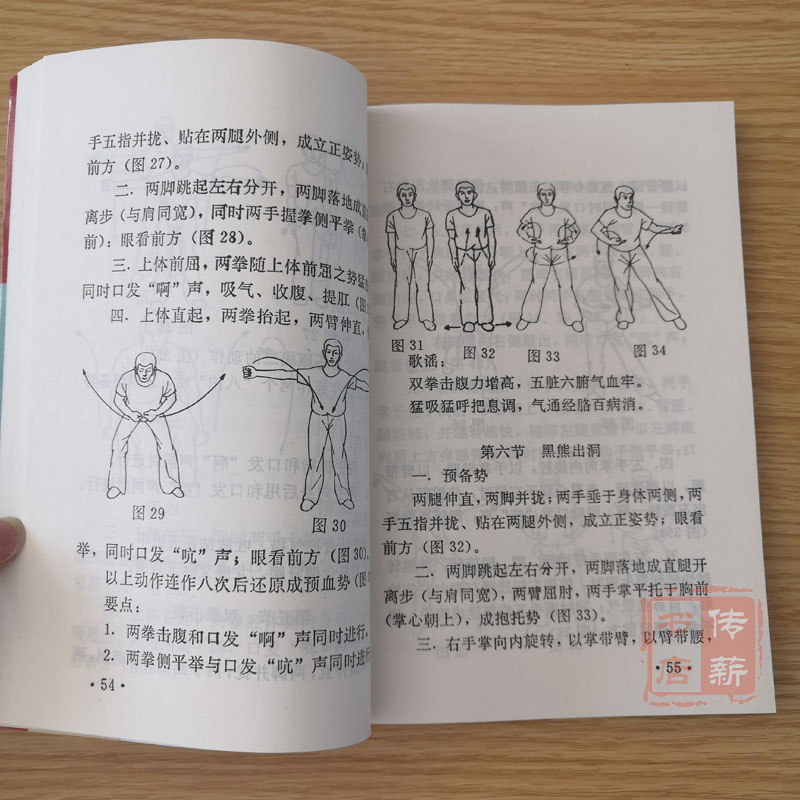 手五指并拢、贴在两腿外侧，成立正姿势；
前方（图 27）。
二．两脚跳起左右分开，两脚落地成直
离步（与肩同宽），同时两手握拳侧平拳（
前）：眼看前方（图 28）。
三．上体前屈，两拳随上体前屈之势猛
同时口发“啊”声，吸气、收腹、提肛（
四．上体直起，两拳抬起，两臂伸直，
图 29
图 30
举，同时口发“吭”声；眼看前方（图 30）。
以上动作连作八次后还原成预血势（图
要点：
1．两拳击腹和口发“啊”声同时进行。
2．两拳侧平举与口发“吭”声同时进行
· 54 ·
图 31
图 32
图 33
图 34
歌谣：
双拳击腹力增高，五脏六腑气血牢。
猛吸猛呼把息调，气通经胳百病消。
第六节 黑熊出洞
一．预备势
两腿伸直，两脚并拢；两手垂于身体两侧，两
手五指并拢、贴在两腿外侧，成立正姿势；眼看
前方（图 32）。
二．两脚跳起左右分开，两脚落地成直腿开
离步（与肩同宽），两臂屈肘，两手掌平托于胸前
（掌心朝上），成抱托势（图 33）。
三．右手掌向内旋转，以掌带臂，以臂带腰，
· 55 ·
传薪
书店